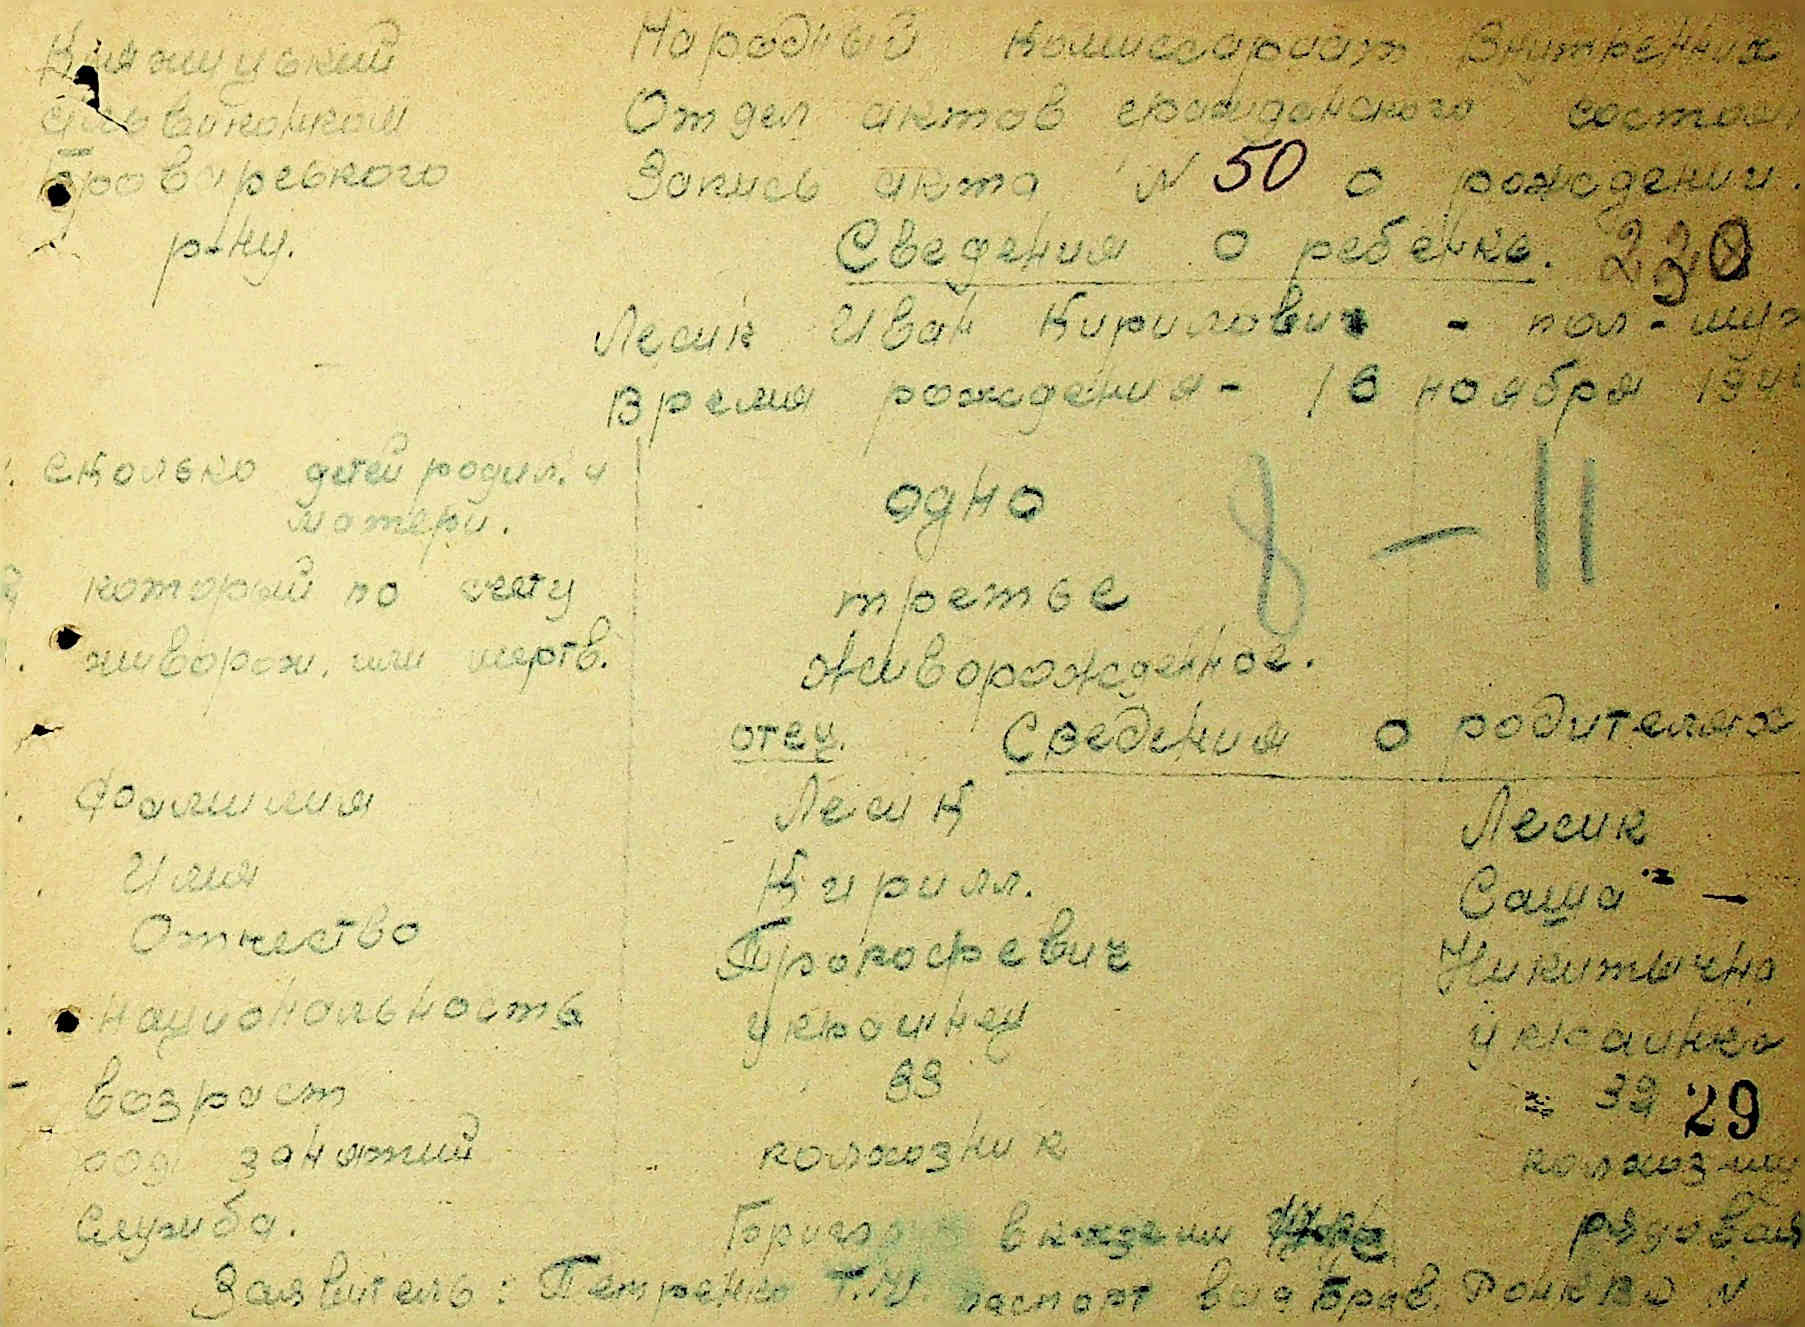 Княжицький Народный Комиссариат Внутренних
сільвиконком Отдел актов гражданского состоян
Броварського Запись акта N 50 о рождении.
р-ну. Сведения о ребенке. 220
Лесик Иван Кирилович - пол - муж
Время рождения - 16 ноября 194
сколько детей родил. у
матери. одно 8 - 11
который по счету третье
живорож. или мертв. Живорожденное.
отец. Сведения о родителях
Фамилия Лесик Лесик
Имя Кирилл. Саша -
Отчество Прокофевич Никитична
национальность украинец украинка
возраст 33 32 29
род занятий колхозник колхозни
Служба. рядовая
Заявитель: Петренко Т.М. паспорт выд Бров. N